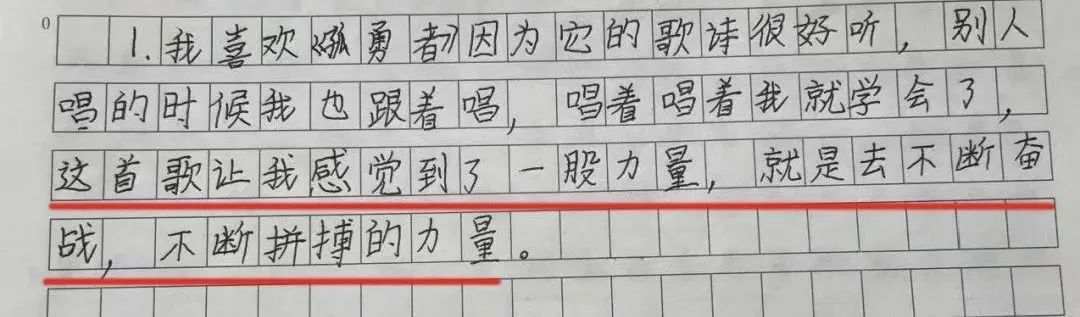 0
1. 我喜欢《孤勇者》因为它的歌诗很好听，别人
唱的时候我也跟着唱，唱着唱着我就学会了，
这首歌让我感觉到了一股力量，就是去不断奋
战，不断拼搏的力量。